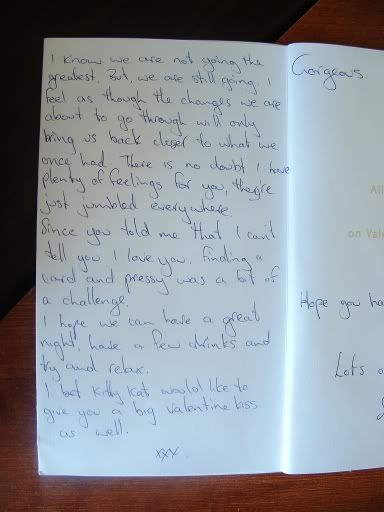 I know we are not going the
greatest. But, we are still going, I
feel as though the changes we are
about to go through will only
bring us back closer to what we
once had. There is no doubt I have
plenty of feelings for you, they're
just jumbled everywhere.
Since you told me that I can't
tell you I love you. Finding a
card and pressy was a bit of
a challenge.
I hope we can have a great
night, have a few drinks and
try and relax.
I bet Kitty Kat would like to
give you a big Valentine kiss
as well.
xxx.
Gorgeous.
All
on Vale
Hope you ha
Lots o